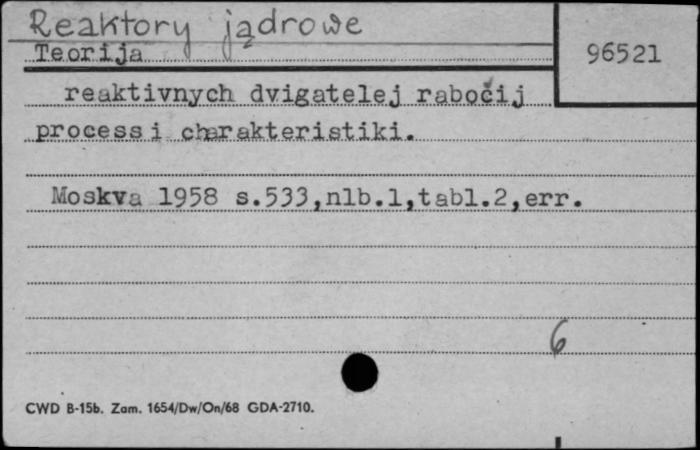 Reaktory jądrowe
96521
Teorija
reaktivnych dvigatelej rabočij
process i charakteristiki.
Moskva 1958 s.533,nlb.1,tabl.2,err.
6
CWD B-15b. Zam. 1654/Dw/On/68 GDA-2710.